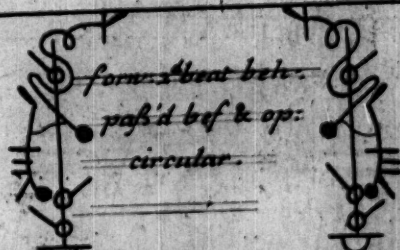 forw: 2d beat beh:.
paſs'd bef & op:
circular.